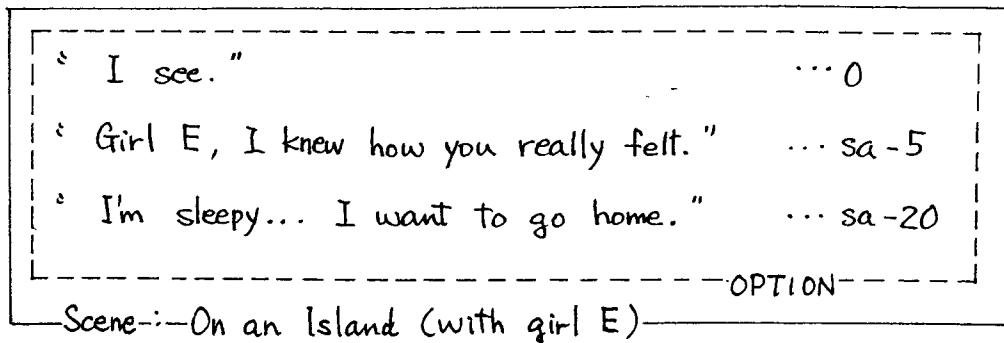 " I see." ... 0
" Girl E, I knew how you really felt." ... sa-5
" I'm sleepy... I want to go home." ... sa-20
OPTION
Scene: On an Island (with girl E)